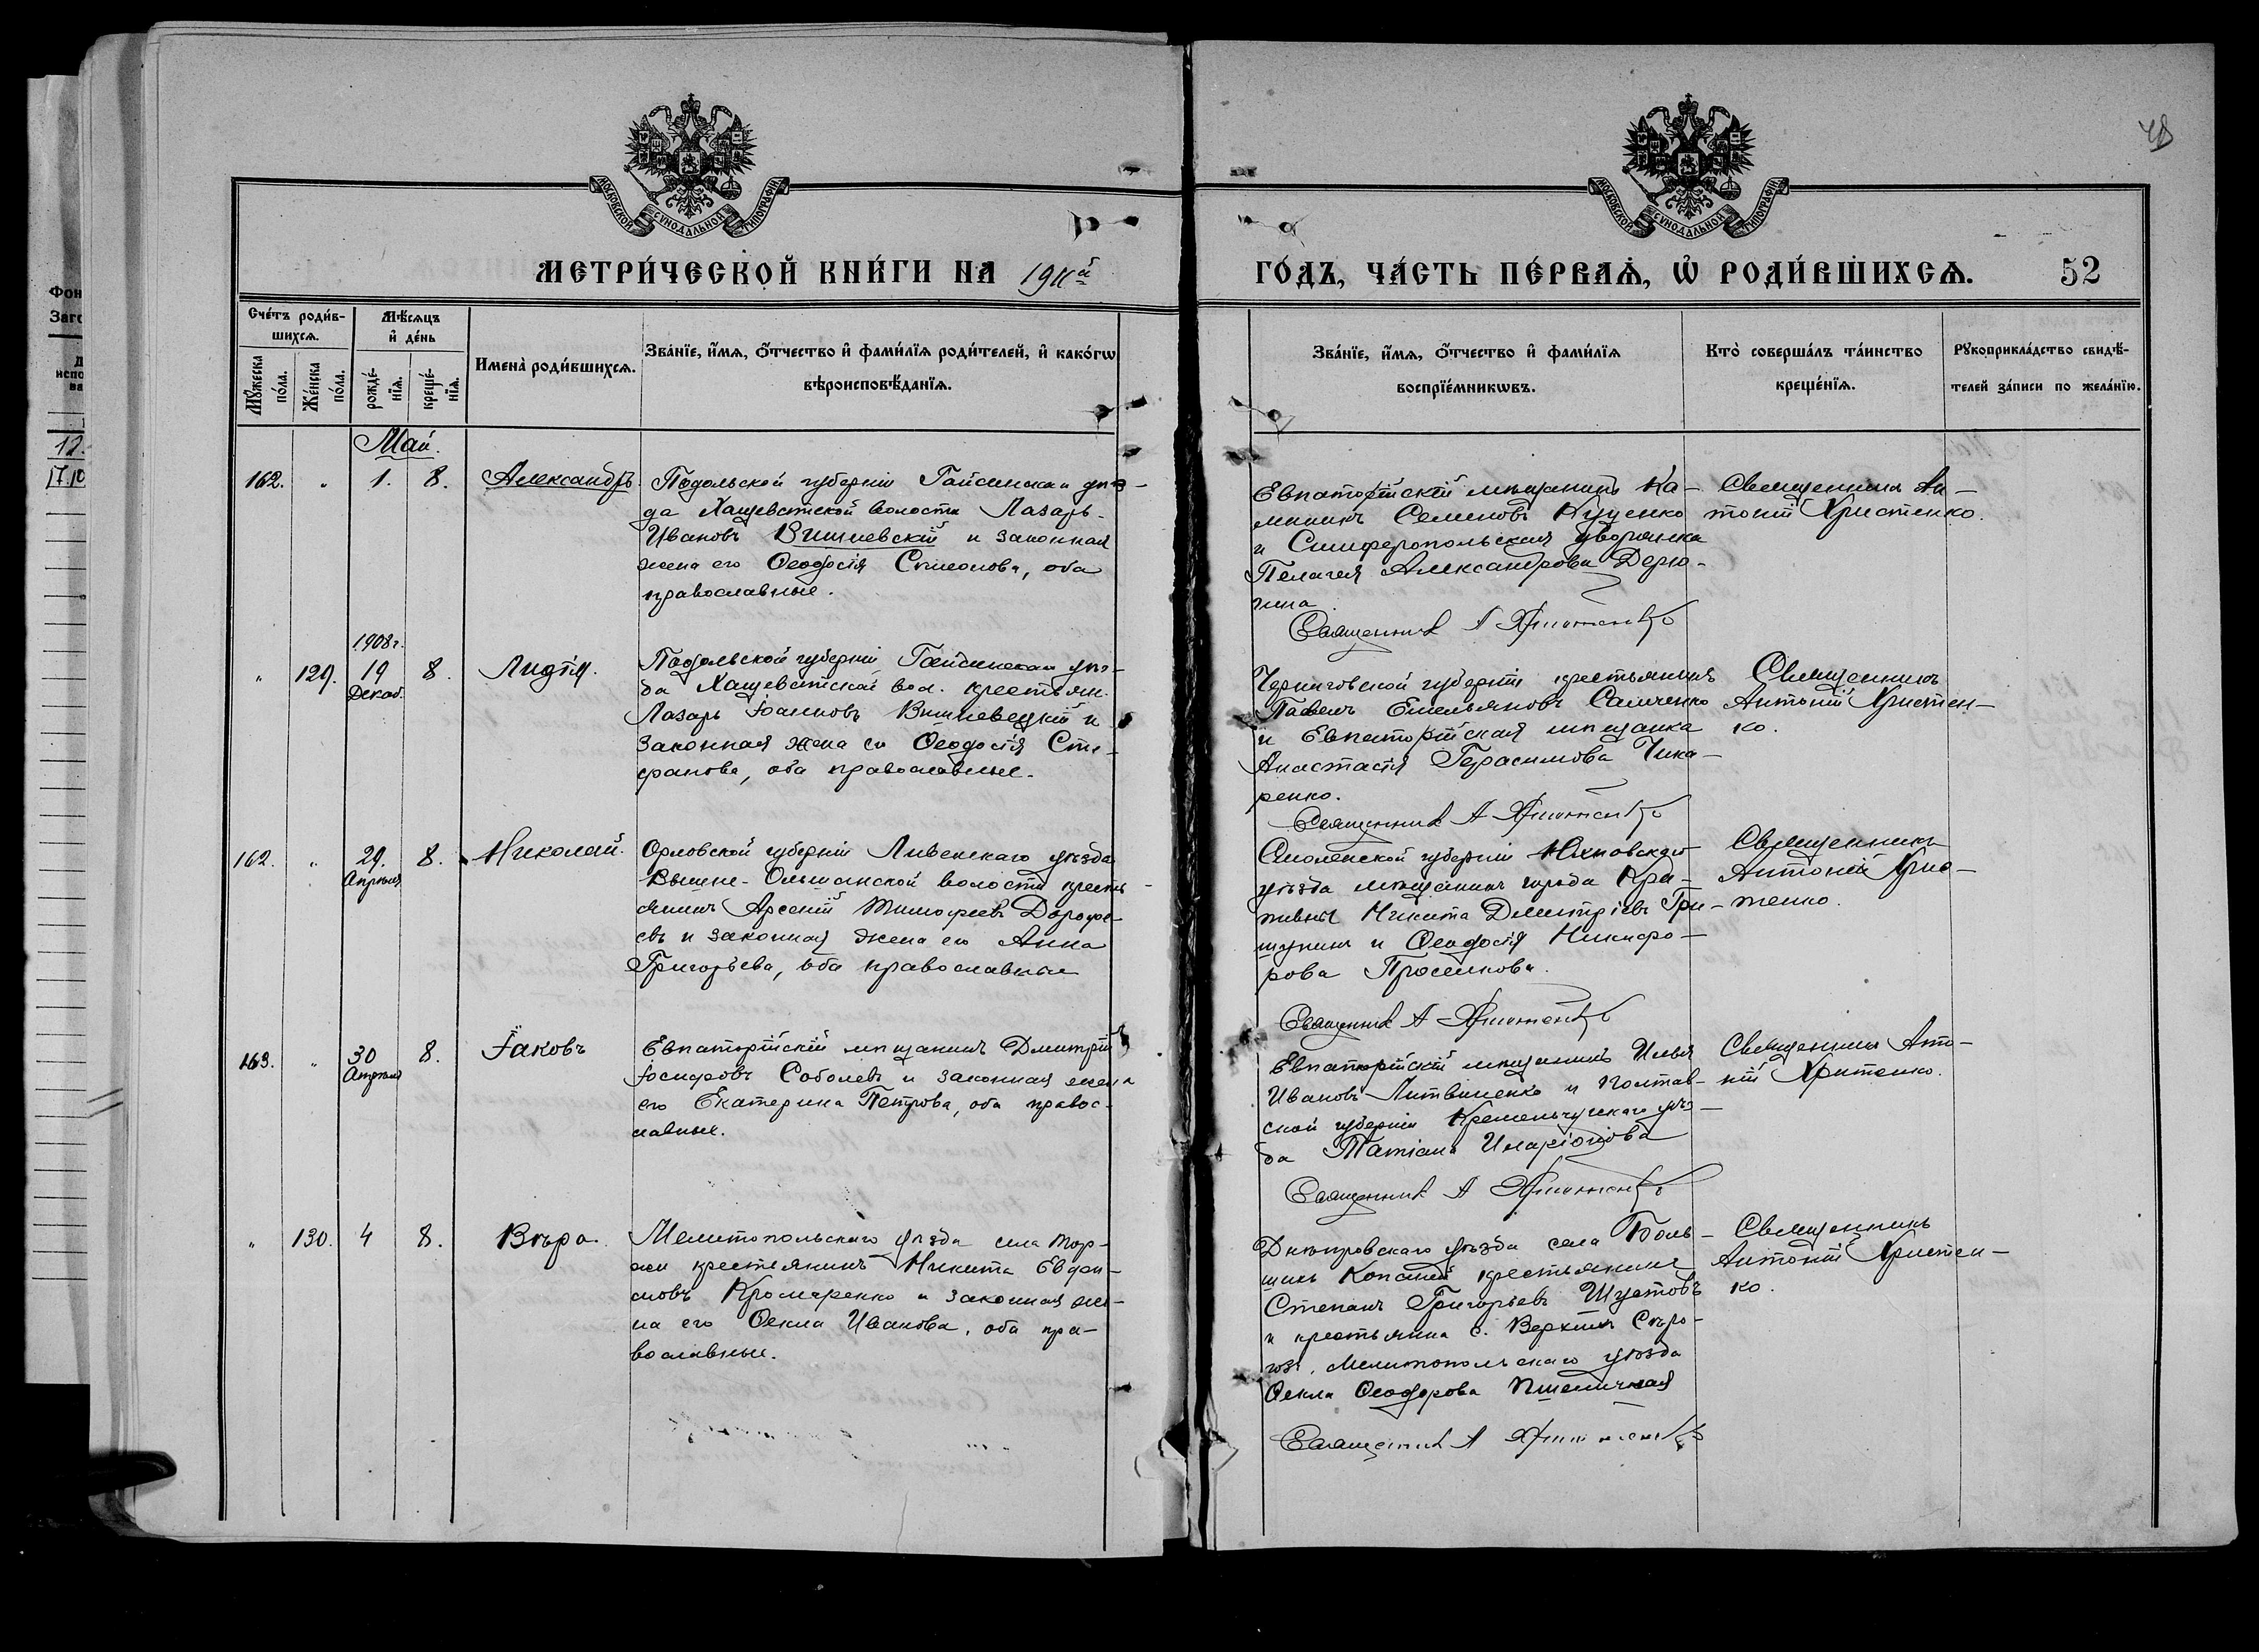 МОСКОВСКОЙ СУНОДАЛЬНОЙ ТИПОГРАФІИ
МОСКОВСКОЙ СУНОДАЛЬНОЙ ТИПОГРАФІИ
МЕТРИ́ЧЕСКОЙ КНИ́ГИ НА 1911й ГО́ДЪ, ЧА́СТЬ ПЕ́РВАѦ, Ѡ҆ РОДИ́ВШИХСѦ. 52
Сче́тъ роди́в-
шихсѧ.
Мꙋжеска по́ла.
Же́нска по́ла.
Мѣ́сѧцъ
и҆ де́нь
рожде́-
нїѧ.
креще́-
нїѧ.
Имена̀ роди́вшихсѧ.
Зва́нїе, и҆́мѧ, ѻ҆́тчество и҆ фами́лїѧ роди́телей, и҆ како́гѡ
вѣроисповѣ́данїѧ.
Зва́нїе, и҆́мѧ, ѻ҆́тчество и҆ фами́лїѧ
воспрїе́мникѡвъ.
Кто̀ соверша́лъ та́инство
креще́нїѧ.
Рꙋкоприкла́дство свидѣ́-
телей за́писи по жела́нїю.
Май.
162. " 1. 8. Александръ.
Подольской губерніи Гайсинскаго уѣз-
да Хащеватской волости Лазарь
Ивановъ Вишневскій и законная
жена его Ѳеодосія Симеонова, оба
православные.
Евпаторійскій мѣщанинъ Ка-
линикъ Семеновъ Куценко
и Симферопольская дворянка
Пелагея Александрова Дерю-
гина.
Священникъ Ан-
тоній Христенко.
Священникъ А Христенко
" 129. 1908 г. 19 Декаб. 8. Лидія.
Подольской губерніи Гайсинскаго уѣз-
да Хащеватской вол. крестьян.
Лазарь Іоанновъ Вишневецкій и
законная жена его Ѳеодосія Сте-
фанова, оба православные.
Черниговской губерніи крестьянинъ
Павелъ Емельяновъ Салченко
и Евпаторійская мѣщанка
Анастасія Герасимова Чика-
ренко.
Священникъ
Антоній Христен-
ко.
Священникъ А Христенко
162. " 29. Апрѣля 8. Николай.
Орловской губерніи Ливенскаго уѣзда
Вышне-Ольшанской волости кресть-
янинъ Арсеній Тимофеевъ Дорофе-
евъ и законная жена его Анна
Григорьева, оба православные
Смоленской губерніи Юхновскаго
уѣзда мѣщанинъ города
Никита Димитріевъ Гри-
шунинъ и Ѳеодосія Никифо-
рова
Священникъ
Антоній Хрис-
тенко.
Священникъ А Христенко
163. " 30 Апрѣля 8. Іаковъ
Евпаторійскій мѣщанинъ Дмитрій
Іосифовъ Соболевъ и законная жена
его Екатерина Петрова, оба правос-
лавные.
Евпаторійскій мѣщанинъ Илья
Ивановъ Литвиненко и Полтав-
ской губерніи Кременчугскаго уѣз-
да Татіана Иларіонова
Священникъ Анто-
ній Христенко.
Священникъ А Христенко
" 130. 4 8. Вѣра.
Мелитопольскаго уѣзда села Тор-
аи крестьянинъ Никита Евдок-
имовъ Кромаренко и законная же-
на его Ѳекла Иванова, оба пра-
вославные.
Днѣпровскаго уѣзда села Боль-
шихъ Копаней крестьянинъ
Степанъ Григорьевъ Шустовъ
и крестьянка с. Верхнихъ Сѣро-
гозъ, Мелитопольскаго уѣзда
Ѳекла Ѳеодорова Пшеничная
Священникъ
Антоній Христен-
ко.
Священникъ А Христенко